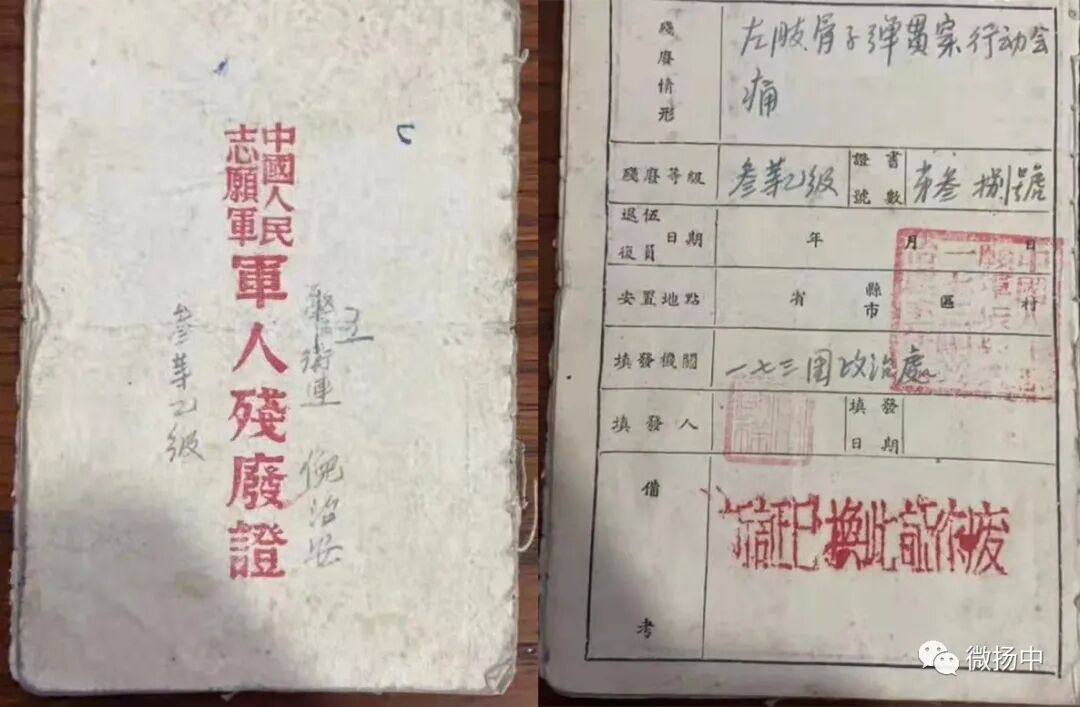 中國人民
志願軍
軍人殘廢證
警衛連 倪治安
五
叁等乙级
殘廢情形
左肢骨子弹贯穿行动会
痛
殘廢等級 叁等乙级 證書號數 字叁捌號
退伍復員日期 年 月 日
安置地點 省 縣市 區 村
填發機關 一七三团政治處
填發人 填發日期
備考
新証已換此証作废
微扬中